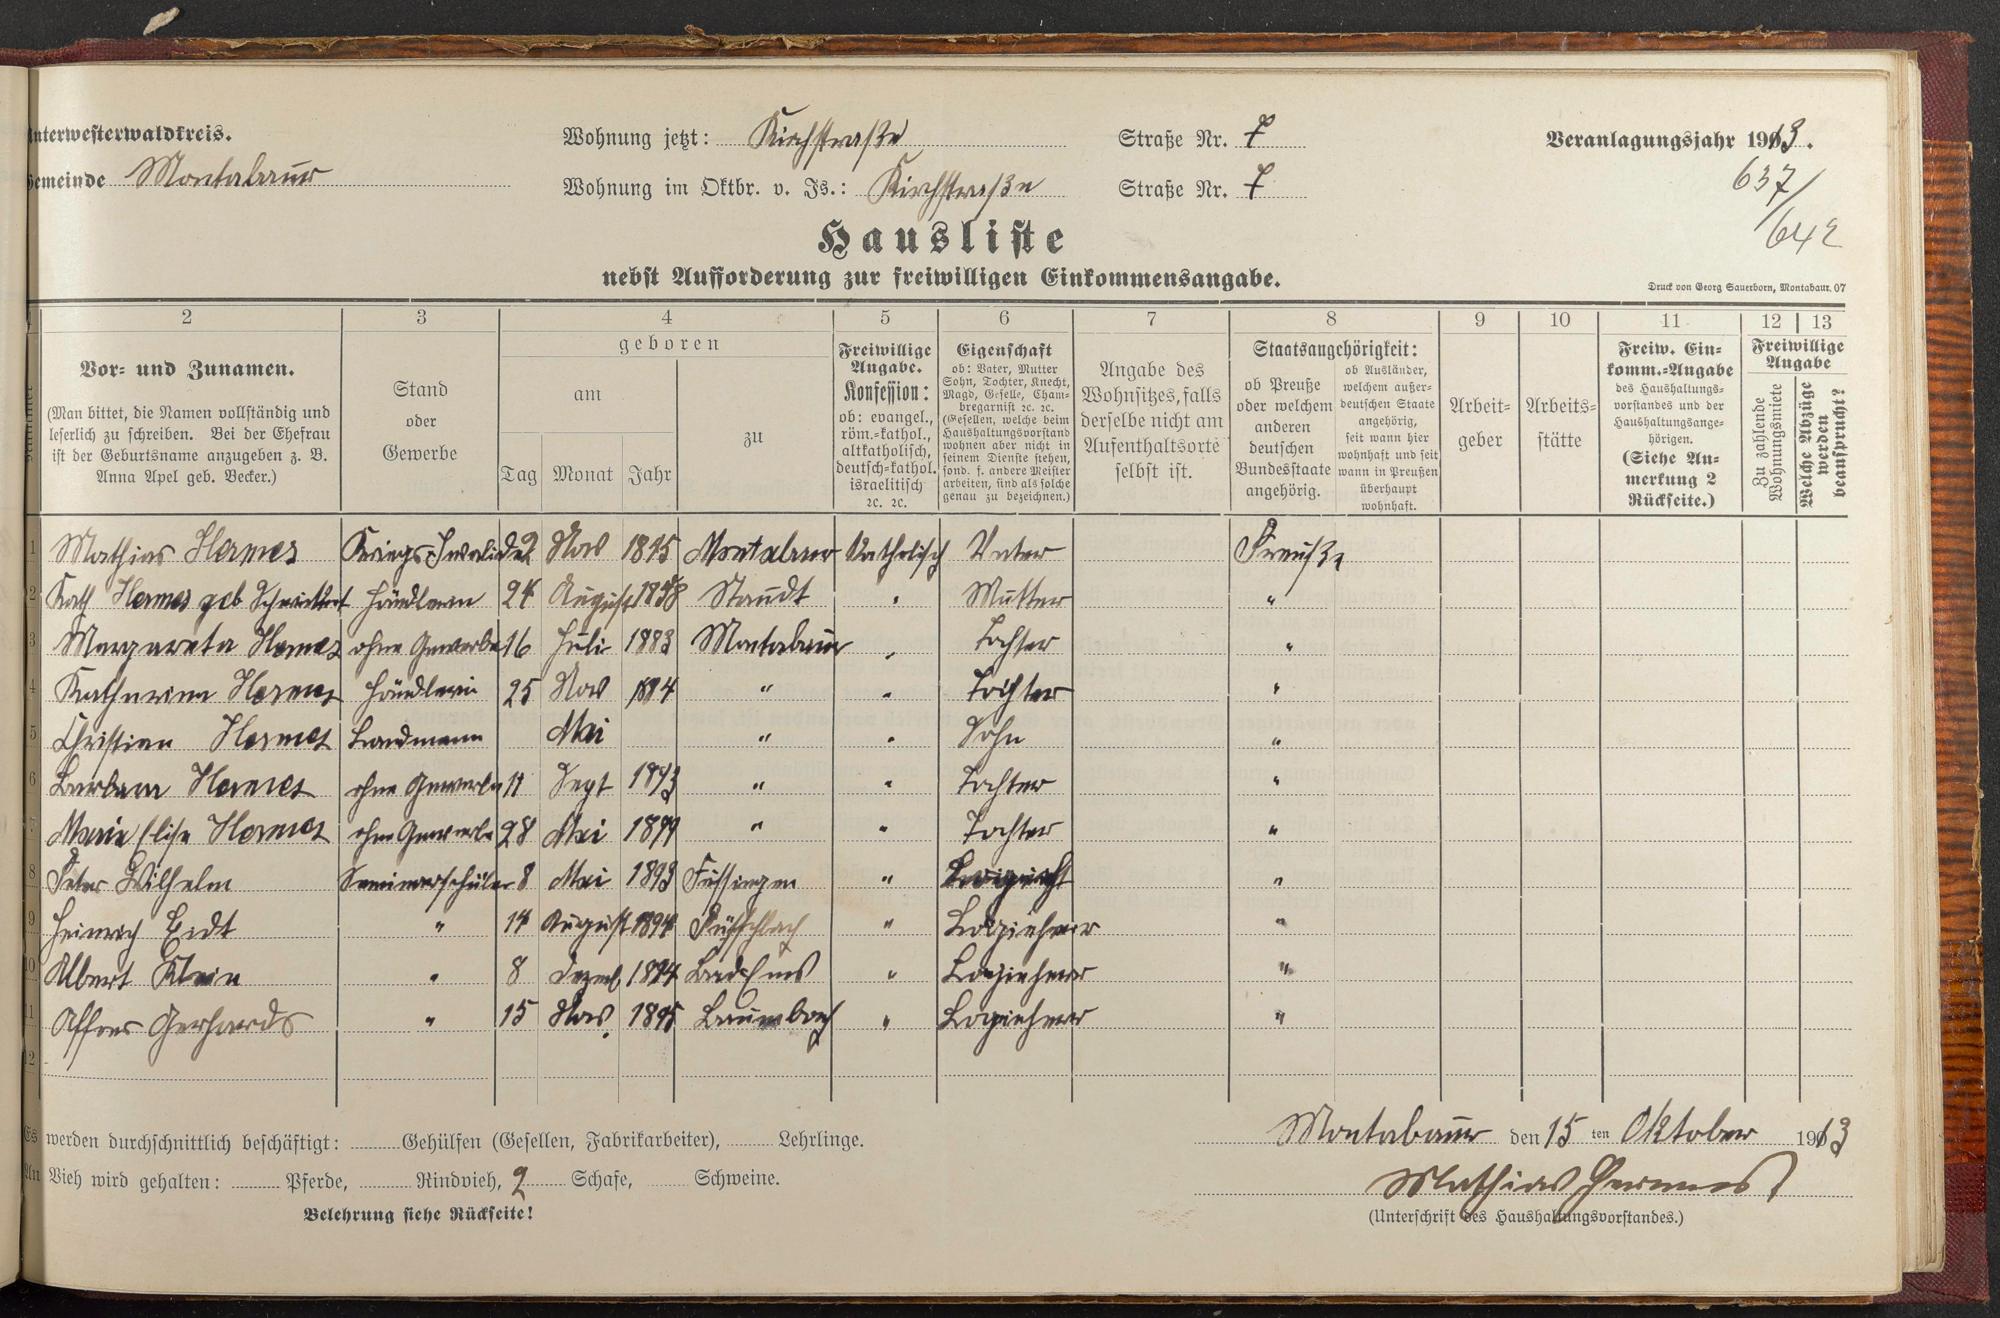 Unterwesterwaldkreis.
Gemeinde Montabaur
Wohnung jetzt: Kirchstraße Straße Nr. 7
Wohnung im Oktbr. v. Js.: Kirchstraße Straße Nr. 7
Veranlagungsjahr 1913.
637/
642
Hausliste
nebst Aufforderung zur freiwilligen Einkommensangabe.
Druck von Georg Sauerborn, Montabaur. 07
2 3 4 5 6 7 8 9 10 11 12 13
Vor- und Zunamen.
(Man bittet, die Namen vollständig und
leserlich zu schreiben. Bei der Ehefrau
ist der Geburtsname anzugeben z. B.
Anna Apel geb. Becker.)
Stand
oder
Gewerbe
geboren
am
Tag Monat Jahr
zu
Freiwillige
Angabe.
Konfession:
ob: evangel.,
röm.-kathol.,
altkatholisch,
deutsch-kathol.
israelitisch
ꝛc. ꝛc.
Eigenschaft
ob: Vater, Mutter
Sohn, Tochter, Knecht,
Magd, Geselle, Cham-
bregarnist ꝛc. ꝛc.
(Gesellen, welche beim
Haushaltungsvorstand
wohnen aber nicht in
seinem Dienste stehen,
sond. f. andere Meister
arbeiten, sind als solche
genau zu bezeichnen.)
Angabe des
Wohnsitzes, falls
derselbe nicht am
Aufenthaltsorte
selbst ist.
Staatsangehörigkeit:
ob Preuße
oder welchem
anderen
deutschen
Bundesstaate
angehörig.
ob Ausländer,
welchem außer-
deutschen Staate
angehörig,
seit wann hier
wohnhaft und seit
wann in Preußen
überhaupt
wohnhaft.
Arbeit-
geber
Arbeits-
stätte
Freiw. Ein-
komm.-Angabe
des Haushaltungs-
vorstandes und der
Haushaltungsange-
hörigen.
(Siehe An-
merkung 2
Rückseite.)
Freiwillige
Angabe
Zu zahlende
Wohnungsmiete
Welche Abzüge
werden
beansprucht?
1 Mathias Hermes Kriegs-Invalide 2 Nov 1845 Montabaur Katholisch Vater Preuße
2 Kath Hermes geb Händlerin 24 August Staudt " Mutter "
3 Margareta Hermes ohne Gewerbe 16 Juli 1883 Montabaur " Tochter "
4 Katharina Hermes Händlerin 25 Nov " " Tochter "
5 Christian Hermes Landmann Mai " " Sohn "
6 Barbara Hermes ohne Gewerbe 11 Sept " " Tochter "
7 Maria Elise Hermes ohne Gewerbe 28 Mai " " Tochter "
8 Peter Wilhelm Seminarschüler 8 Mai 1893 Fussingen " "
9 Heinrich Eidt " 14 August 1894 " Logieherr "
10 Albert Klein " 8 Dezemb 1894 Bad Ems " Logieherr "
11 Alfons Gerhards " 15 Nov. 1895 Baumbach " Logieherr "
12
Es werden durchschnittlich beschäftigt: Gehülfen (Gesellen, Fabrikarbeiter), Lehrlinge.
An Vieh wird gehalten: Pferde, Rindvieh, 2 Schafe, Schweine.
Belehrung siehe Rückseite!
Montabaur den 15 ten Oktober 1913
Mathias Hermes
(Unterschrift des Haushaltungsvorstandes.)